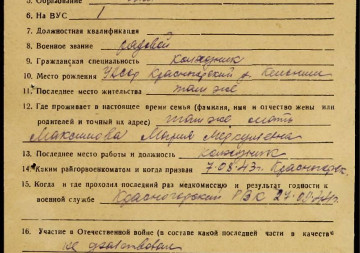 5. Образование
6. На ВУС 1
7. Должностная квалификация
8. Военное звание рядовой
9. Гражданская специальность колхозник
10. Место рождения УАССР Красногорский р.
11. Последнее место жительства там же
12. Где проживает в настоящее время семья (фамилия, имя и отчество жены или
родителей и точный их адрес) там же мать
Максимова Мария
13. Последнее место работы и должность колхозник
14. Каким райгорвоенкоматом и когда призван 7.08.43г. Красногорск.
15. Когда и где проходил последний раз медкомиссию и результат годности к
военной службе Красногорский РВК
16. Участие в Отечественной войне (в составе какой последней части в качеств
не участвовал